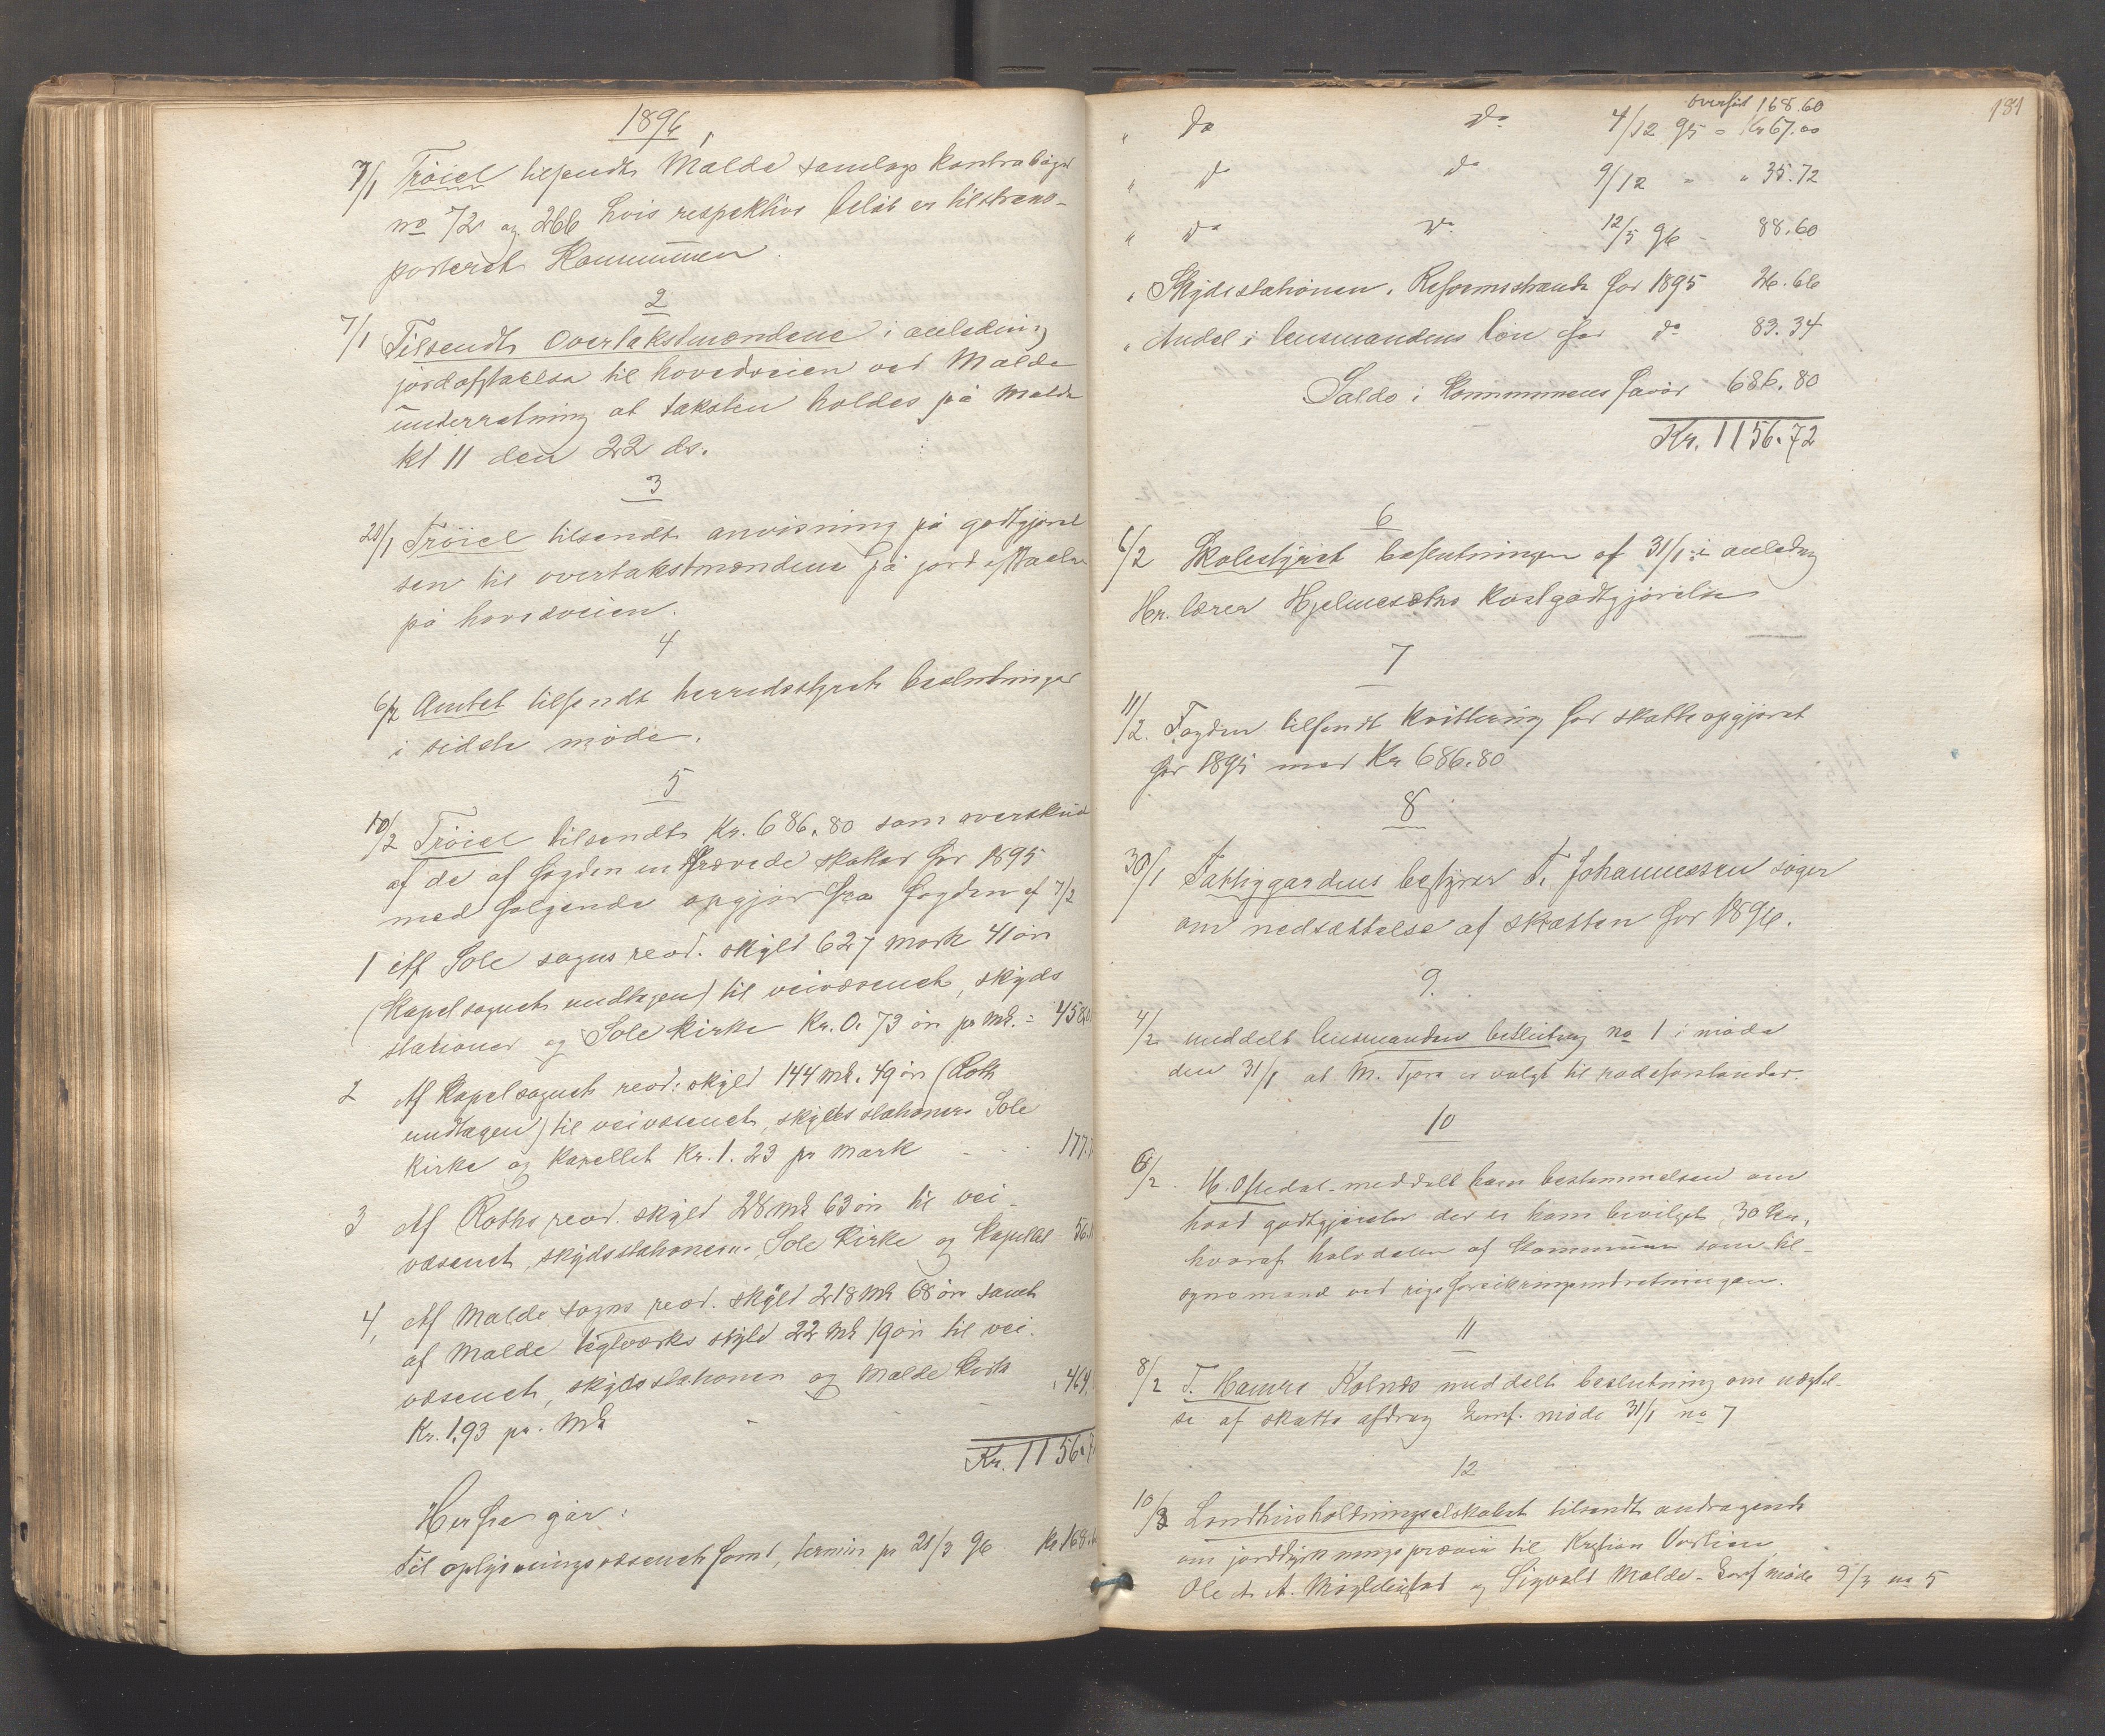 1896
1
7/1 Tröiel tilsendt Malde samlags kontrabøger
no 72 og 266 hvis respektive beløb er tiltrans-
porteret Kommunen.
2
7/1 Tilsendt Overtakstmændene i anledning
jordafstaelse til hovedveien ved Malde
underretning at taksten holdes på Malde
kl 11 den 22 ds.
3
20/1 Tröiel tilsendt anvisning på godtgjørel
sen til overtakstmændene på jordafstaaelse
på hovedveien.
4
6/2 Amtet tilsendt herredsstyrets beslutninger
i sidste møde.
5
10/2 Tröiel tilsendt Kr. 686.80 som overskud
af de af fogden indkrævede skatter for 1895
med følgende opgjør fra fogden af 7/2
1 Af Sole sogns revd. skyld 627 mark 41 øre
(Kapelsognet undtagen) til veivæsenet, skyds
stationer og Sole kirke Kr. 0.73 øre pr mk. = 458.
2 Af Kapelsognets revd. skyld 144 mk. 49 øre (Roth
undtagen) til veivæsenet, skydsstationer Sole
kirke og kapellet Kr. 1.23 pr mark - - 177.
3 Af Roths revd. skyld 28 mk 63 øre til vei-
væsenet, skydsstationer, Sole kirke og Kapellet 56.
4, Af Malde sogns revd. skyld 218 mk 68 øre samt
af Malde teglværks skyld 22 mk 19 øre til vei-
væsenet, skydsstationen og Malde kirke
Kr. 1.93 pr. mk - - " 464.
Kr. 1156.7
Herfra går:
Til oplysningsvæsenets fond, termin pr 21/3 96. Kr 168.6
181
overført 168.60
" do do 4/12 95 = Kr 67.00
" do do 9/12 - " 35.72
" do do 12/5 96 - 88.60
" Skydsstationen, Reformstrande for 1895 26.66
" Andel i lensmandens løn for do 83.34
Saldo i Kommunens favør 686.80
Kr. 1156.72
6
6/2 Skolestyret beslutningen af 31/1 i anledng
Hr. lærer Hjelmesæths kostgodtgjørelse
7
11/2. Fogden tilsendt kvittering for skatteopgjøret
for 1895 med Kr 686.80
8
30/1 Fattiggardens bestyrer T. Johannesen søger
om nedsættelse af skatten for 1896.
9.
4/2 meddelt lensmanden beslutng no 1 i møde
den 31/1 at M. Tjora er valgt til rodeforstander.
10
6/2. M. Oftedal meddelt ham bestemmelsen om
hvad godtgjørelse der er ham bevilget, 30 kr.,
hvoraf halvdelen af Kommunen som til-
synsmand ved rigsforsikringsindretningen.
11
8/2 T. Hamre Kolnes meddelt beslutning om nægtel-
se af skatte afdrag konf. møde 31/1 no 7
12
10/3 Landhusholdningselskabet tilsendt andragende
om jorddyrkningspræmie til Kristian
Ole A. og Sigvald Malde - konf møde 9/3 no 5